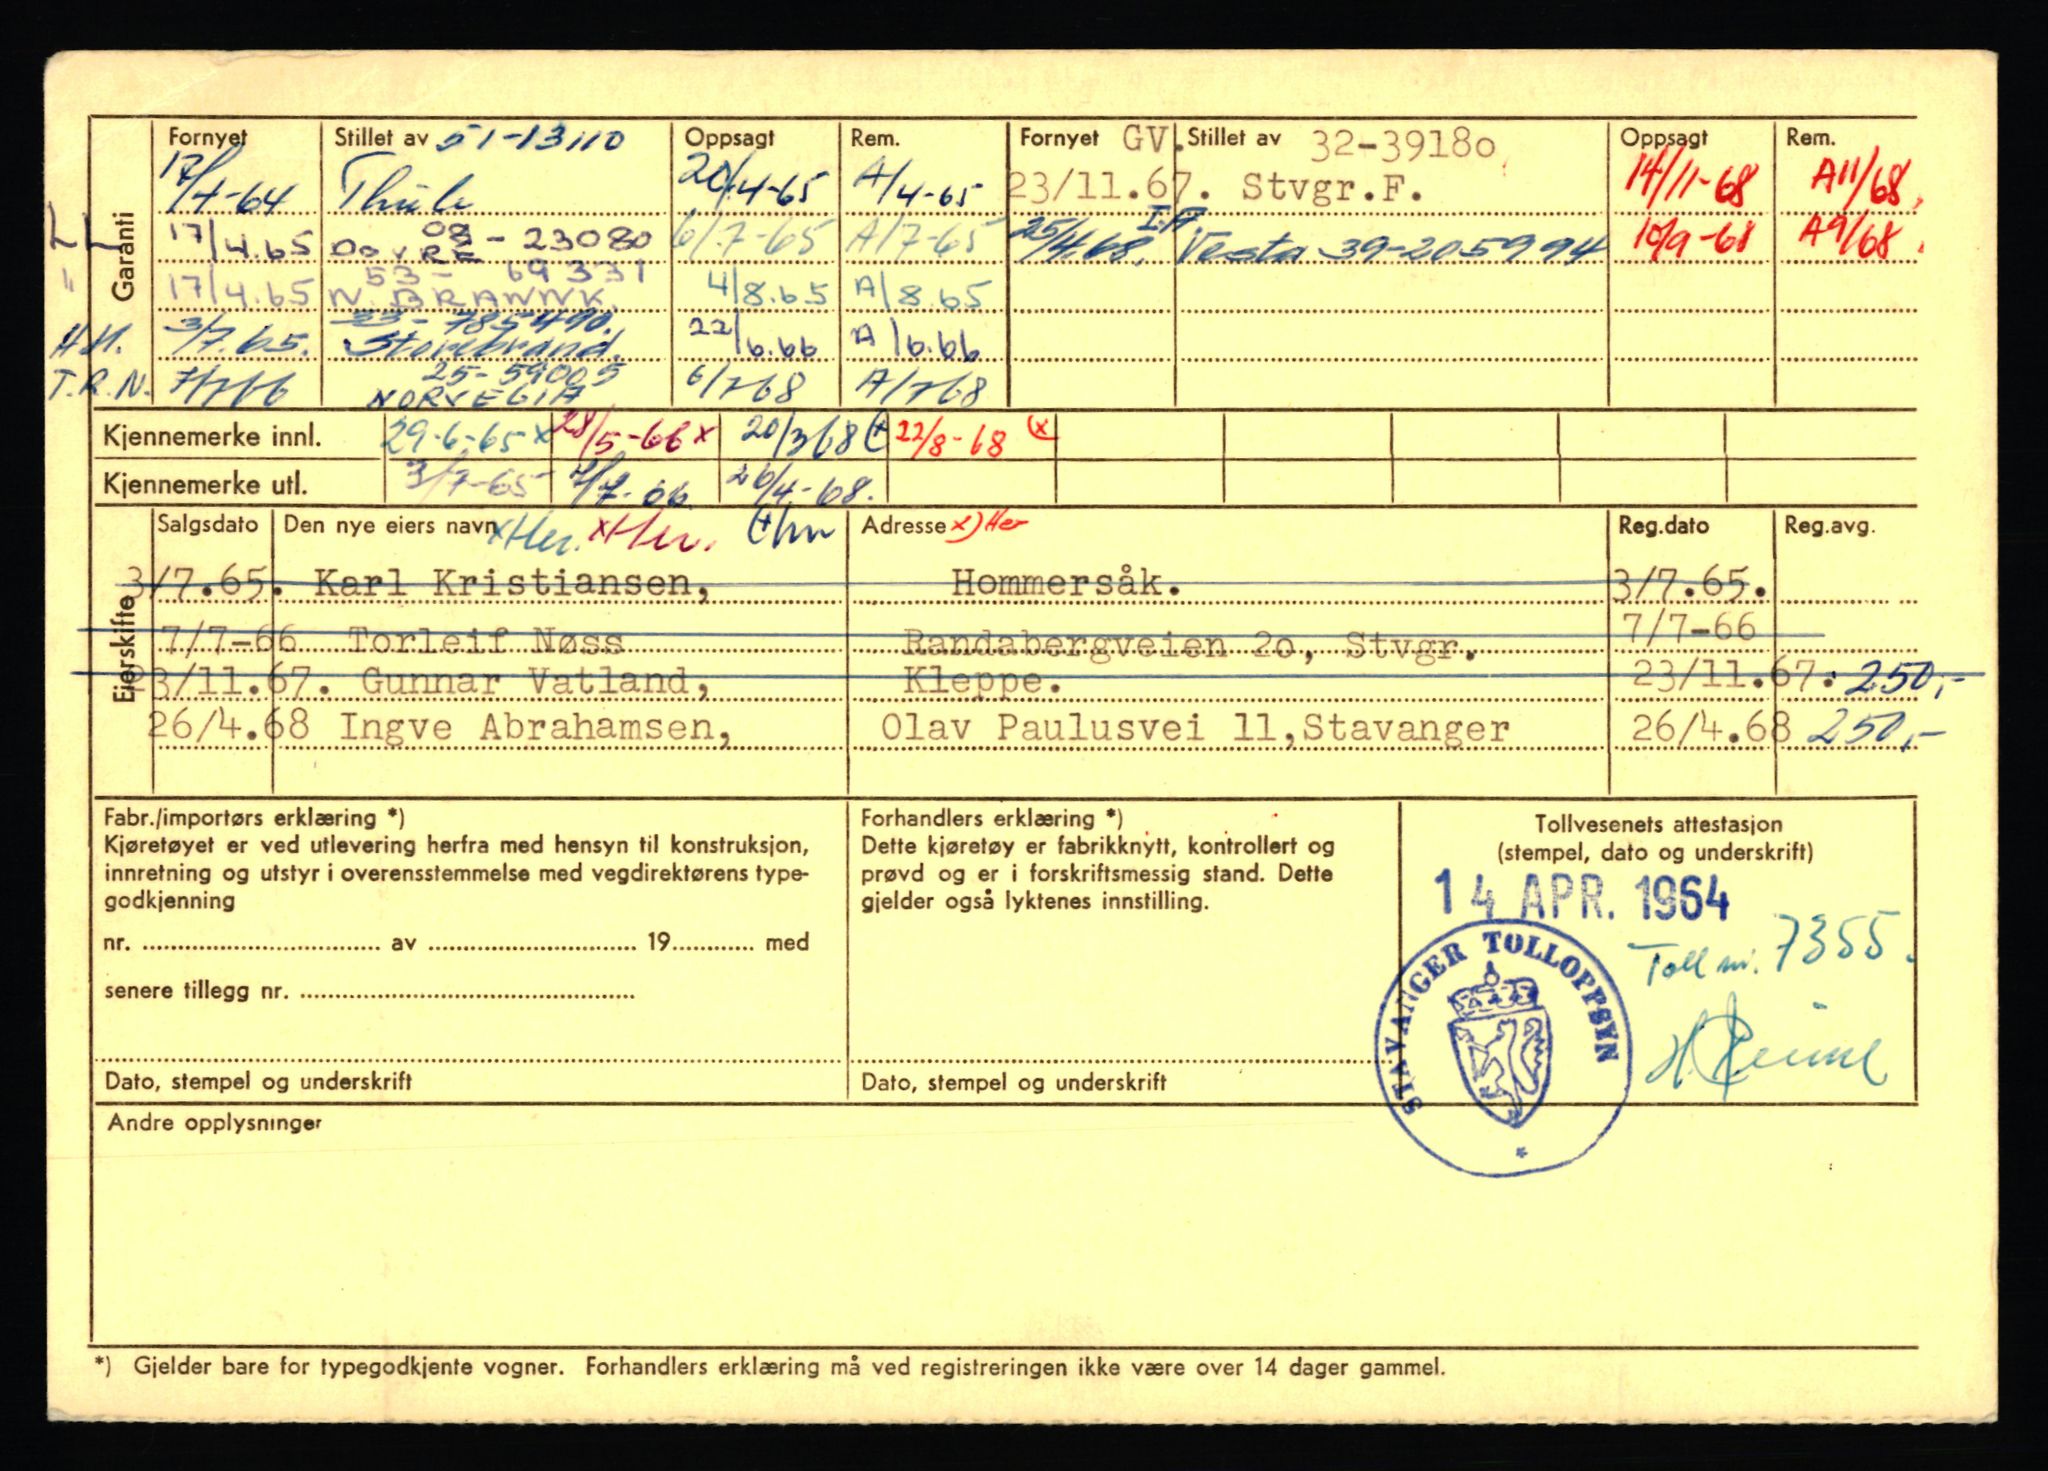 Garanti
Fornyet Stillet av 51-13110 Oppsagt Rem. Fornyet GV. Stillet av 32-39180 Oppsagt Rem.
17/4-64 Thule 20/4-65 A/4-65 23/11.67. Stvgr.F. 14/11-68 A11/68.
LL 17/4.65 DOVRE 08-23080 6/7-65 A/7-65 25/4.68. I.A Vesta 39-205994 10/9-68 A9/68.
" 17/4.65 53-69331 N. BRANNK. 4/8.65 A/8.65
A.H. 3/7.65. 33-785490. Storebrand. 22/6.66 A/6.66
T.R.N. 7/7 66 25-59005 NORVEGIA 6/7 68 A/7 68
Kjennemerke innl. 29-6-65 x 28/5-66 x 20/3 68 (+ 22/8-68 (x
Kjennemerke utl. 3/7-65 7/7-66 26/4-68.
Eierskifte
Salgsdato Den nye eiers navn x Her. x Her. (+ hn Adresse x) Her Reg.dato Reg.avg.
3/7.65. Karl Kristiansen, Hommersåk. 3/7.65.
7/7-66 Torleif Nøss Randabergveien 2o, Stvgr. 7/7-66
23/11.67. Gunnar Vatland, Kleppe. 23/11.67. 250,-
26/4.68 Ingve Abrahamsen, Olav Paulusvei 11,Stavanger 26/4.68 250,-
Fabr./importørs erklæring *)
Kjøretøyet er ved utlevering herfra med hensyn til konstruksjon,
innretning og utstyr i overensstemmelse med vegdirektørens type-
godkjenning
nr. av 19 med
senere tillegg nr.
Dato, stempel og underskrift
Forhandlers erklæring *)
Dette kjøretøy er fabrikknytt, kontrollert og
prøvd og er i forskriftsmessig stand. Dette
gjelder også lyktenes innstilling.
Dato, stempel og underskrift
Tollvesenets attestasjon
(stempel, dato og underskrift)
14 APR. 1964
Toll nr. 7355.
STAVANGER TOLLOPPSYN
Andre opplysninger
*) Gjelder bare for typegodkjente vogner. Forhandlers erklæring må ved registreringen ikke være over 14 dager gammel.